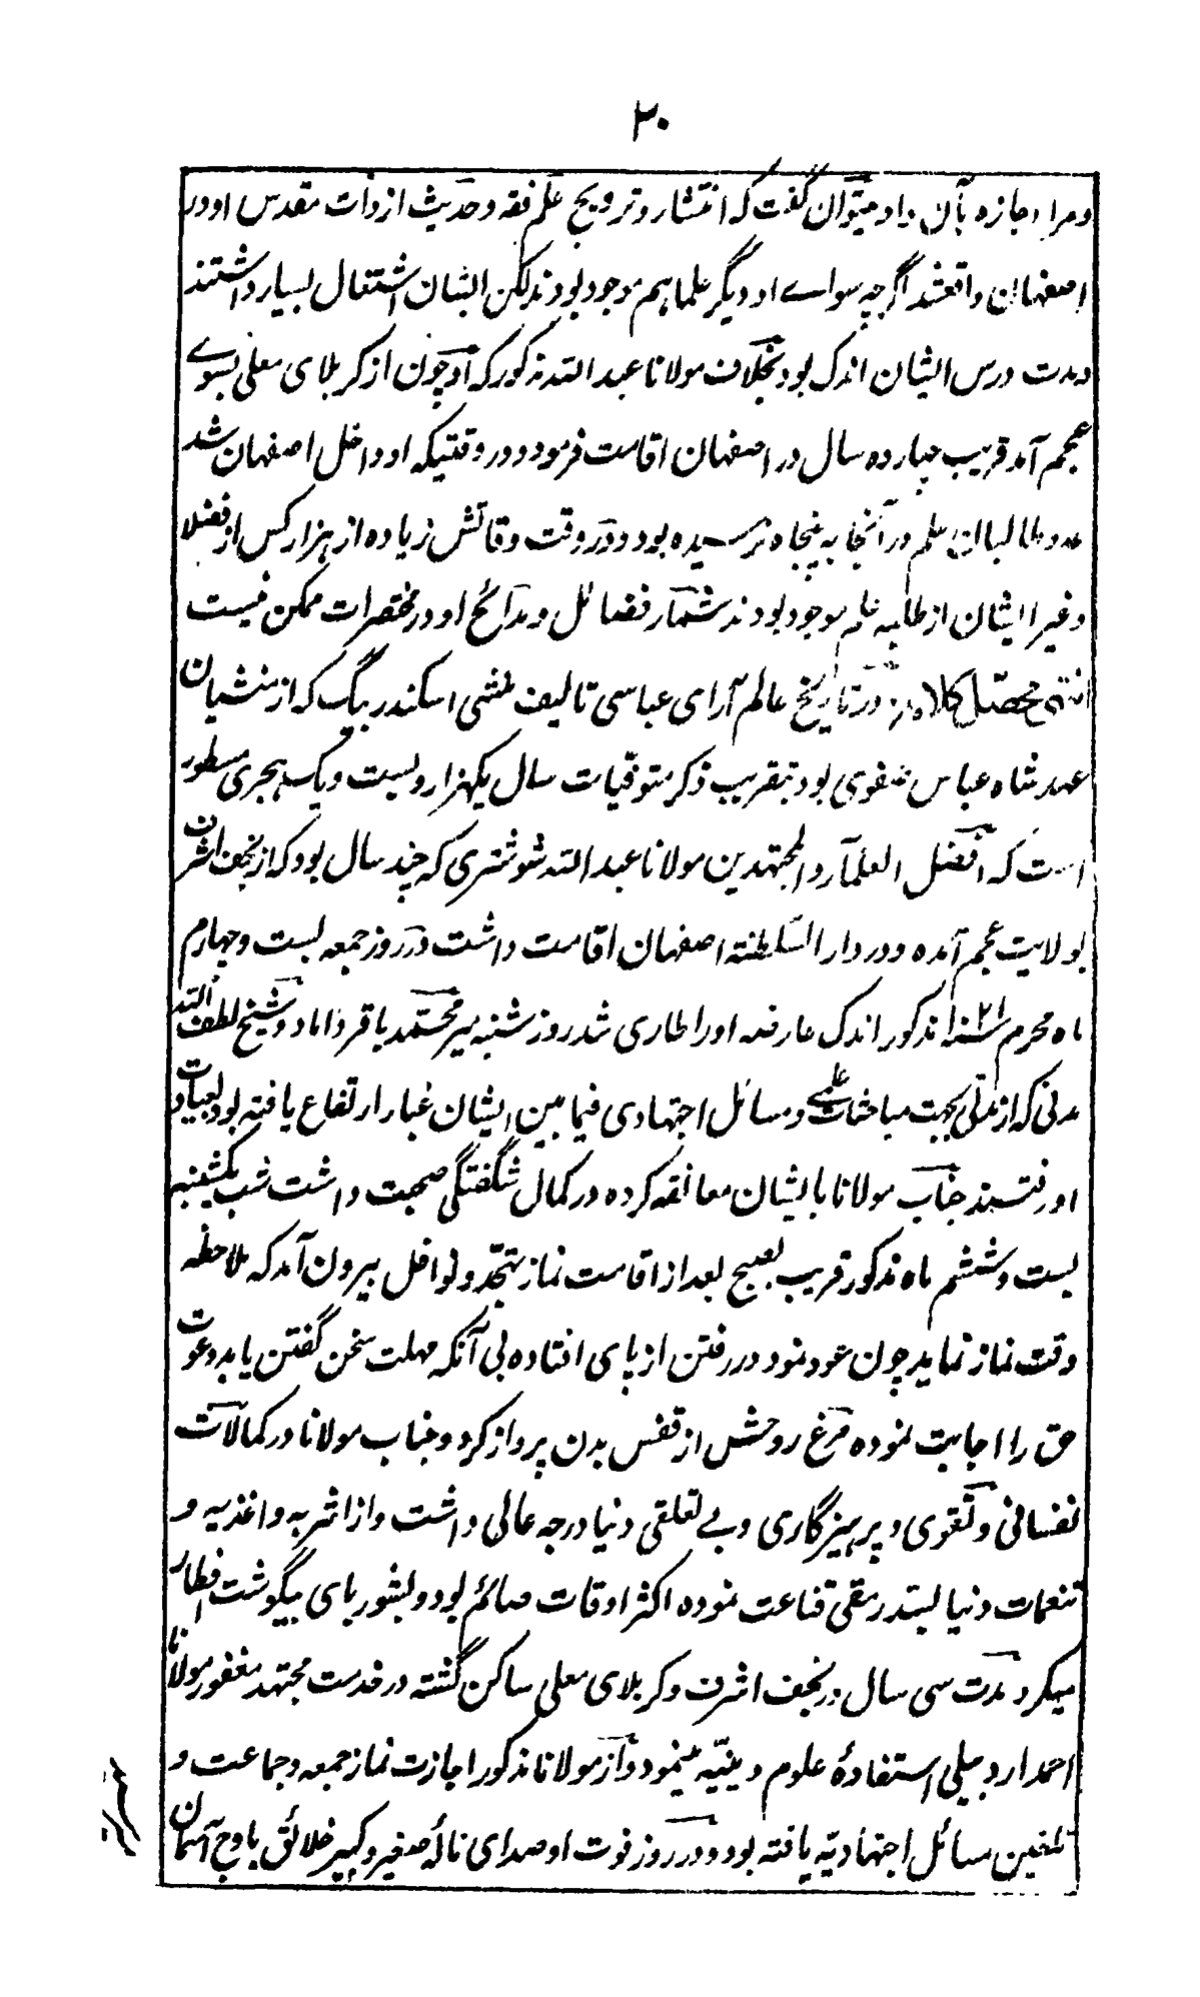 ۳۰
ومرا اجازه بآن داد میتوان گفت که انتشار و ترویج علم فقه و حدیث از ذات مقدس او در
اصفهان واقعشد اگرچه سواے او دیگر علما هم موجود بودند لکن ایشان اشتغال بسیار داشتند
ومدت درس ایشان اندک بود بخلاف مولانا عبد الله مذکور که او چون از کربلای معلی بسوے
عجم آمد قریب چهارده سال در اصفهان اقامت فرمود و در وقتیکه او داخل اصفهان شد
عدد طالبان علم در آنجا به پنجاه نرسیده بود و در وقت وفاتش زیاده از هزار کس از فضلا
وغیر ایشان از طلبه علم موجود بودند شمار فضائل و مدائح او در مختصرات ممکن نیست
انتهی محصّل کلامه در تاریخ عالم آرای عباسی تالیف منشی اسکندر بیگ که از منشیان
عهد شاه عباس صفوی بود بتقریب ذکر متوفیات سال یکهزار و بست و یک هجری مسطور
است که افضل العلمآء و المجتهدین مولانا عبد الله شوشتری که چند سال بود که از نجف اشرف
بولایت عجم آمده و در دار السلطنة اصفهان اقامت داشت در روز جمعه بست و چهارم
ماه محرم سنه ۱۰۲۱ مذکور اندک عارضه او را طاری شد روز شنبه میر محمّد باقر داماد و شیخ لطف الله
مدنی که از مدتی بجهت مباحثات علمے و مسائل اجتهادی فیما بین ایشان غبار ارتفاع یافته بود بعیادت
او رفتند جناب مولانا با ایشان معانقه کرده در کمال شگفتگی صحبت داشت شب یکشنبه
بست و ششم ماه مذکور قریب بصبح بعد از اقامت نماز تهجّد و نوافل بیرون آمد که ملاحظه
وقت نماز نماید چون عود نمود در رفتن از پای افتاده بی آنکه مهلت سخن گفتن یابد دعوت
حق را اجابت نموده مرغ روحش از قفس بدن پرواز کرد و جناب مولانا در کمالات
نفسانی و تقوی و پرهیزگاری و بے تعلقی دنیا درجه عالی داشت و از اشربه و اغذیه و
تنعمات دنیا بسد رمقی قناعت نموده اکثر اوقات صائم بود و بشوربای بیگوشت افطار
میکرد مدت سی سال در نجف اشرف و کربلای معلی ساکن گشته در خدمت مجتهد مغفور مولانا
احمد اردبیلی استفادهٔ علوم دینیّه مینمود و از مولانا مذکور اجازت نماز جمعه و جماعت و
تلقین مسائل اجتهادیّه یافته بود و در روز فوت او صدای نالهٔ صغیر و کبیر خلائق باوج آسمان